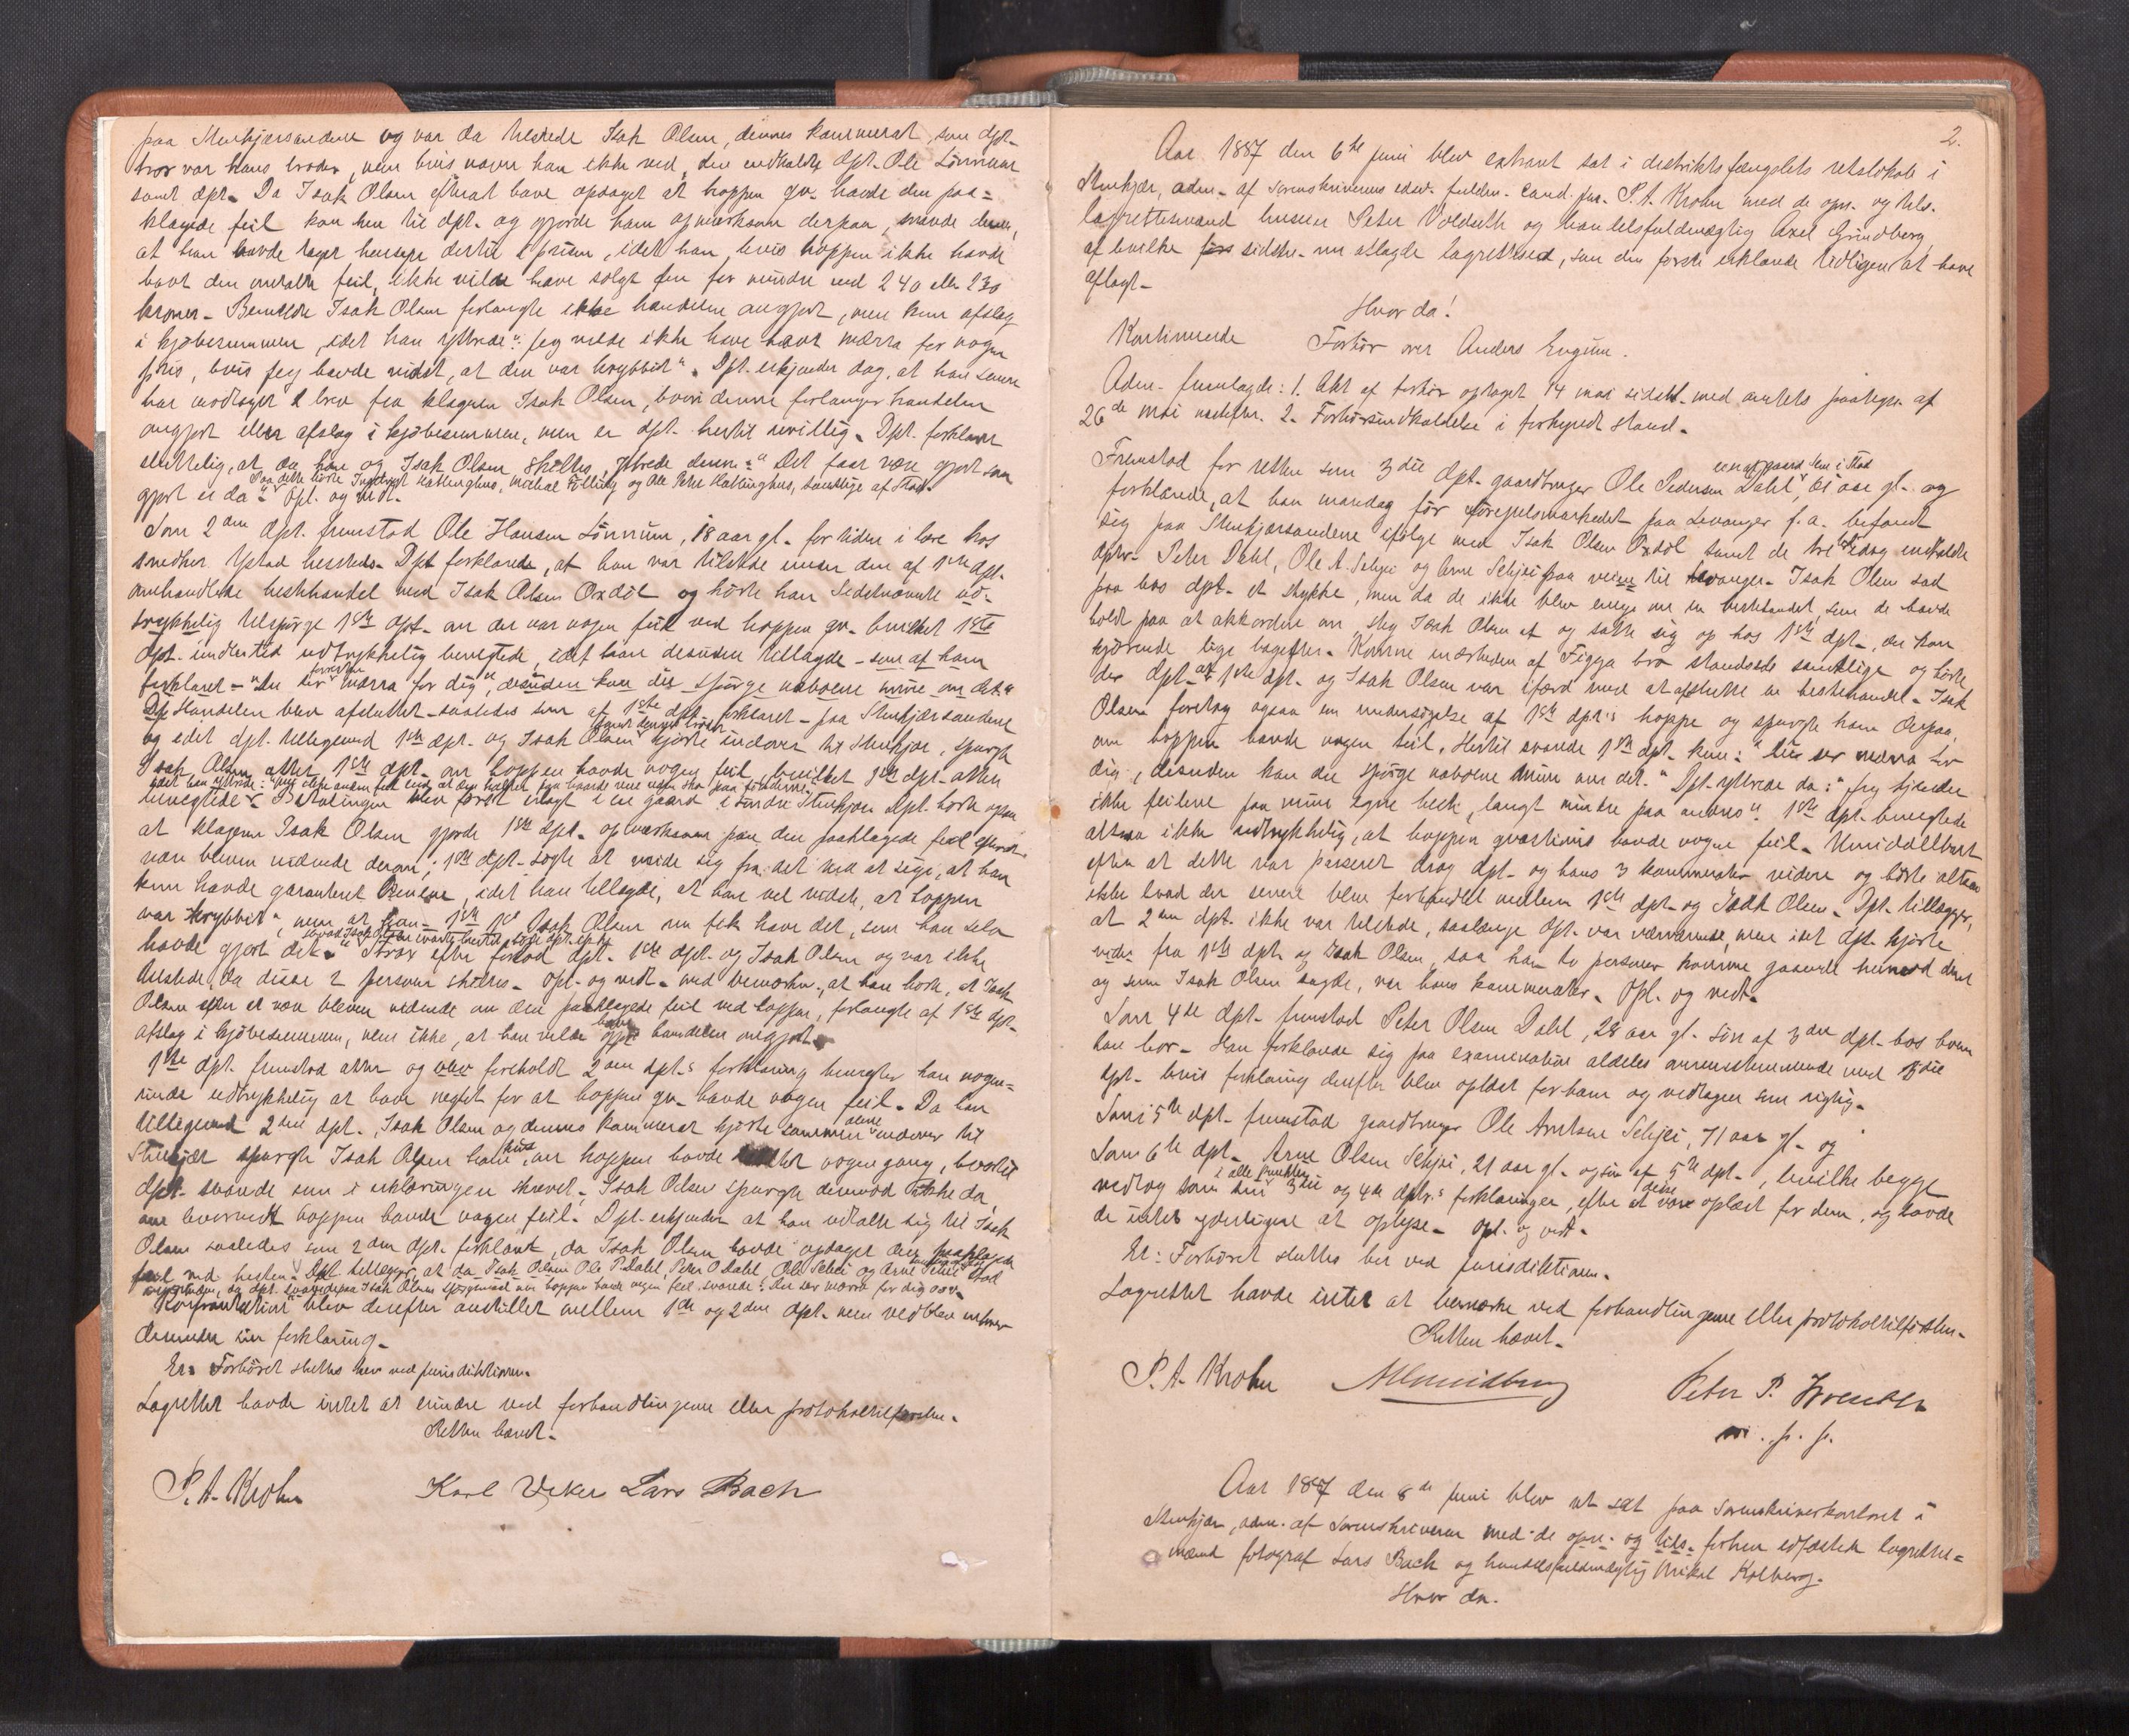 paa Stenkjærsanden og var da tilstede Isak Olsen, dennes kammerat, som dpt.
tror var hans broder, men hvis navn han ikke ved, den indkaldte dpt. Ole Lönnum
samt dpt. Da Isak Olsen efterat have opdaget at hoppen qv. havde den paa=
klagede feil kom hen til dpt. og gjorde ham opmærksom derpaa, svarede denne,
at han havde taget hensyn dertil i prisen, idet han, hvis hoppen ikke havde
havt den omtalte feil, ikke vilde have solgt den for mindre end 240 eller 230
kroner. Bemeldte Isak Olsen forlangte ikke handelen omgjort, men kun afslag
i kjøbesummen, idet han yttrede: "Jeg vilde ikke have havt mærra for nogen
pris, hvis jeg havde vidst, at den var krybbit". Dpt. erkjender dog, at han senere
har modtaget 2 brev fra klageren Isak Olsen, hvori denne forlanger handelen
omgjort eller afslag i kjøbesummen, men er dpt. hertil uvillig. Dpt. forklarer
sluttelig, at da han og Isak Olsen skiltes, yttrede denne: "Det faar være gjort som
Paa dette hörte Ingebrigt Katlinghus, Mikal Fölling og Ole Peter Katlinghus, samtlige af Stod.
gjort er da". Opl. og vedt.
Som 2den dpt. fremstod Ole Hansen Lönnum, 18 aar gl. for tiden i lære hos
smeden Ystad hersteds. Dpt. forklarede, at han var tilstede under den af 1ste dpt.
omhandlede hestehandel med Isak Olsen Oxdöl og hörte han sidstnævnte ud-
trykkelig tilspörge 1ste dpt. om der var nogen feil ved hoppen qv. hvilket 1ste
dpt. imidlertid udtrykkelig benegtede, idet han desuden tillagde - som af ham
forklaret - "Du ser mærra for dig", desuden kan du spörge naboerne mine om det."
Handelen blev afsluttet - saaledes som af 1ste dpt. forklaret - paa Stenkjærsanden
og idet dpt. tilligemed 1ste dpt. og Isak Olsen kjörte indover til Stenkjær, spurgte
Isak Olsen atter 1ste dpt. om hoppen havde nogen feil, hvilket 1ste dpt. atter
benegtede. Betalingen blev först erlagt i en gaard i söndre Stenkjær. Dpt. hörte ogsaa
at klageren Isak Olsen gjorde 1ste dpt. opmærksom paa den paaklagede feil efterat
være bleven vidende derom; 1ste dpt. sögte at vride sig fra det ved at sige, at han
kun havde garanteret benene, idet han tillagde, at han vel vidste, at hoppen
var "krybbit", men at han - Isak Olsen nu fik have det, som han selv
havde gjort det". Strax efter forlod dpt. 1ste dpt. og Isak Olsen og var ikke
tilstede, da disse 2 personer skiltes. Opl. og vedt. med bemærkn., at han hörte, at Isak
Olsen efter at være bleven vidende om den paaklagede feil ved hoppen, forlangte af 1ste dpt.
afslag i kjöbesummen, men ikke, at han vilde have handelen omgjort.
1ste dpt. fremstod atter og blev foreholdt 2den dpt.s forklaring benegter han nogen-
sinde udtrykkelig at have negtet for at hoppen qv. havde nogen feil. Da han
tilligemed 2den dpt., Isak Olsen og dennes kammerat kjörte sammen indover til
Stenkjær spurgte Isak Olsen ham, om hoppen havde nogen gang, hvortil
dpt. svarede som i erklæringen skrevet. Isak Olsen spurgte derimod ikke da,
om hvorvidt hoppen havde nogen feil. Dpt. erkjender at han udtalte sig til Isak
Olsen saaledes som 2den dpt. forklaret, da Isak Olsen havde opdaget den paaklagede
feil ved hesten. Dpt. tillægger, at da Isak Olsen Ole P. Dahl, Peter O. Dahl, Ole Sehjei og Arne Sehjei Stod
Konfrontation blev derefter anstillet mellem 1ste og 2den dpt. men vedblev enhver
derunder sin forklaring.
Er: Forhöret sluttes her ved jurisdiktionen.
Lagrettet havde intet at erindre ved forhandlingerne eller protokoltilförslen.
Retten hævet.
P. A. Krohn Karl Veker Lars Bach
2.
Aar 1887 den 6te juni blev extraret sat i distriktsfængslets retslokale i
Stenkjær, adm. af sorenskriverens edsv. fuldm. cand. jur. P. A. Krohn med de opn. og tils.
lagrettesmænd huseier Peter Voldseth og handelsfuldmægtig Axel Grindberg,
af hvilke sidstn. nu aflagde lagretteed, som den förste erklærede tidligere at have
aflagt.
Hvor da!
Kontinuerede Forhör over Anders Engum.
Adm. fremlagde: 1. Akt af forhör optaget 14 mai sidstl. med amtets paategn. af
26de mai næstefter. 2. Forhörsindkaldelse i forkyndt stand.
Fremstod for retten som 3die dpt. gaardbruger Ole Pedersen Dahl, 61 aar gl. og
forklarede, at han mandag för förejulsmarkedet paa Levanger f. a. befandt
sig paa Stenkjærsanden ifölge med Isak Olsen Oxdöl samt de tre idag indkaldte
dptr. Peter Dahl, Ole A. Sehjei og Arne Sehjei paa veien til Levanger. Isak Olsen sad
paa hos dpt. et stykke, men da de ikke blev enige om en hestehandel, som de havde
holdt paa at akkordere om, steg Isak Olsen af og satte sig op hos 1ste dpt., der kom
kjörende lige bagefter. Komne nærheden af Figga bro standsede samtlige og hörte
der dpt. at 1ste dpt. og Isak Olsen var ifærd med at afslutte en hestehandel. Isak
Olsen foretog ogsaa en undersögelse af 1ste dpt.s hoppe og spurgte ham derpaa,
om hoppen havde nogen feil. Hertil svarede 1ste dpt. kun: "Du ser mærra for
dig, desuden kan du spörge naboerne mine om det." Dpt. yttrede da: "jeg kjender
ikke feilene paa mine egne heste, langt mindre paa andres". 1ste dpt. benegtede
altsaa ikke udtrykkelig, at hoppen qvæstionis havde nogen feil. Umiddelbart
efter at dette var passeret drog dpt. og hans 3 kammerater videre og hörte altsaa
ikke hvad der senere blev forhandlet mellem 1ste dpt. og Isak Olsen. Dpt. tillægger,
at 2den dpt. ikke var tilstede, saalænge dpt. var nærværende, men idet dpt. kjörte
videre fra 1ste dpt. og Isak Olsen, saa han to personer komme gaaende henimod dem
og som Isak Olsen sagde, var hans kammerater. Opl. og vedt.
Som 4de dpt. fremstod Peter Olsen Dahl, 28 aar gl. sön af 3die dpt. hos hvem
han bor. Han forklarede sig paa examination aldeles overensstemmende med 3die
dpt. hvis forklaring derefter blev oplæst for ham og vedtagen som rigtig.
Som 5te dpt. fremstod gaardbruger Ole Arntsen Sehjei, 71 aar gl. og
Som 6te dpt. Arne Olsen Sehjei, 21 aar gl. og sön af 5te dpt., hvilke begge
vedtog som sin i alle punkter 3die og 4de dptr.s forklaringer, efter at disse var oplæst for dem, og havde
de intet yderligere at oplyse. Opl. og vedt.
Er: Forhöret sluttes her ved jurisdiktionen.
Lagrettet havde intet at bemærke ved forhandlingerne eller protokoltilförslen.
Retten hævet.
P. A. Krohn AGrindberg Peter P.
m. p. p.
Aar 1887 den 8de juni blev ret sat paa sorenskriverkontoret i
Stenkjær, adm. af sorenskriveren med de opn. og tils. forhen edfæstede lagrettes=
mænd fotograf Lars Bach og handelsfuldmægtig Mikal Kolberg.
Hvor da.